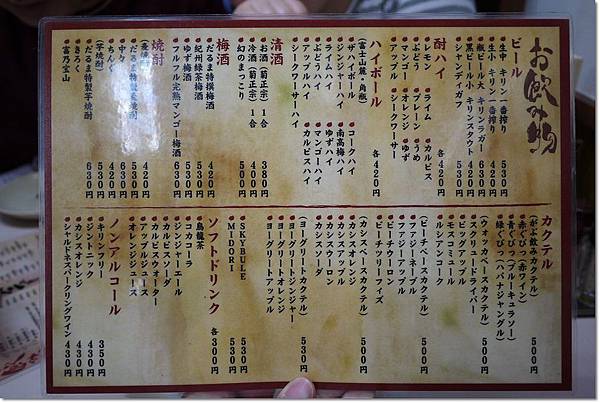 お飲み物
ビール
生中 キリン一番搾り 530円
生小 キリン一番搾り 420円
瓶ビール大 キリンラガー 630円
黒ビール小 キリンスタウト 420円
シャンディガフ 530円
酎ハイ 各420円
レモン
ライム
カルピス
ぶどう
プレーン
うめ
マンゴー
オレンジ
ゆず
アップル
シークワーサー
ハイボール 各420円
(富士山麓・角瓶)
ザ・ハイボール
コークハイ
ジンジャーハイ
南高梅ハイ
ライムハイ
ゆずハイ
ぶどうハイ
マンゴーハイ
アップルハイ
カルピスハイ
シークワーサーハイ
清酒
お酒(菊正宗)1合 380円
冷酒(菊正宗)1合 400円
幻のまっこり 500円
梅酒
だるま特撰梅酒 420円
紀州緑茶梅酒 530円
ゆず梅酒 530円
フルフル完熟マンゴー梅酒 530円
焼酎
(麦焼酎)
だるま特製麦焼酎 420円
中々 630円
ちろく 530円
(芋焼酎)
だるま特製芋焼酎 420円
きろく 530円
富乃宝山 630円
カクテル
(がぶ飲みカクテル) 530円
赤ぐびっ(赤ワイン)
青ぐびっ(ブルーキュラソー)
緑ぐびっ(ハバナジャングル)
(ウォッカベースカクテル) 500円
スクリュードライバー
ビスコミュール
モスコミュール
ルシアンコーク
(ピーチベースカクテル) 500円
ファジーネーブル
ファジーアップル
ピーチウーロン
ピーチフィズ
(カシスベースカクテル) 500円
カシスオレンジ
カシスアップル
カシスウーロン
カシスソーダ
(ヨーグリートカクテル) 500円
ヨーグリートジンジャー
ヨーグリートオレンジ
ヨーグリートアップル
SKYBULE 530円
MIDORI 530円
ソフトドリンク 各300円
烏龍茶
コカコーラ
ジンジャーエール
カルピスソーダ
カルピスウォーター
アップルジュース
オレンジジュース
ノンアルコール
キリンフリー 350円
ジントニック 430円
カシスオレンジ 430円
シャルドネスパークリングワイン 430円